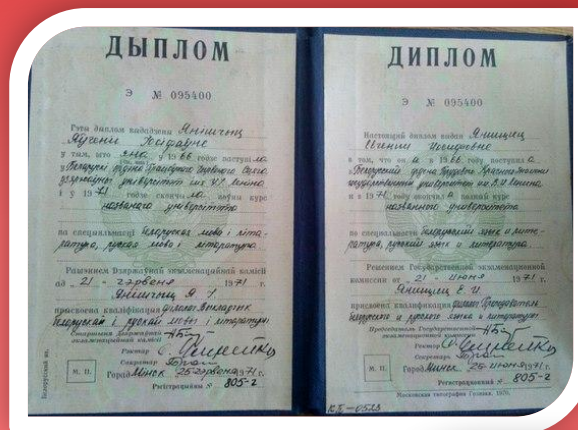 ДЫПЛОМ
Э № 095400
Гэты дыплом выдадзены Яніщыц
Яўгені Іосіфаўне
у тым, што яна у 1966 годзе паступіла
у Беларускі ордэна Працоўнага Чырвонага Сцяга
дзяржаўны універсітэт імя У.І. Леніна
і ў 1971 годзе скончыла поўны курс
названага універсітэта
па спецыяльнасці беларуская мова і літа-
ратура, руская мова і літаратура
Рашэннем Дзяржаўнай экзаменацыйнай камісіі
ад 21 чэрвеня 1971 г.
прысвоена кваліфікацыя
беларускай і рускай моў і літаратуры
Старшыня Дзяржаўнай
экзаменацыйнай камісіі
Рэктар
Сакратар
М. П.
Горад Мінск 25 чэрвеня 1971 г.
Рэгістрацыйны № 805-г
ДИПЛОМ
Э № 095400
Настоящий диплом выдан Янищиц
Евгении Иосифовне
в том, что она в 1966 году поступила
в Белорусский ордена Трудового Красного Знамени
государственный университет им. В.И. Ленина
и в 1971 году окончила полный курс
названного университета
по специальности белорусский язык и лите-
ратура, русский язык и литература
Решением Государственной экзаменационной
комиссии от 21 июня 1971 г.
Янищиц Е. И.
присвоена квалификация филолог. Преподаватель
белорусского и русского языка и литературы
Председатель Государственной
экзаменационной комиссии
Ректор
Секретарь
М. П.
Город Минск 25 июня 1971 г.
Регистрационный № 805-г
Московская типография Гознака. 1970.